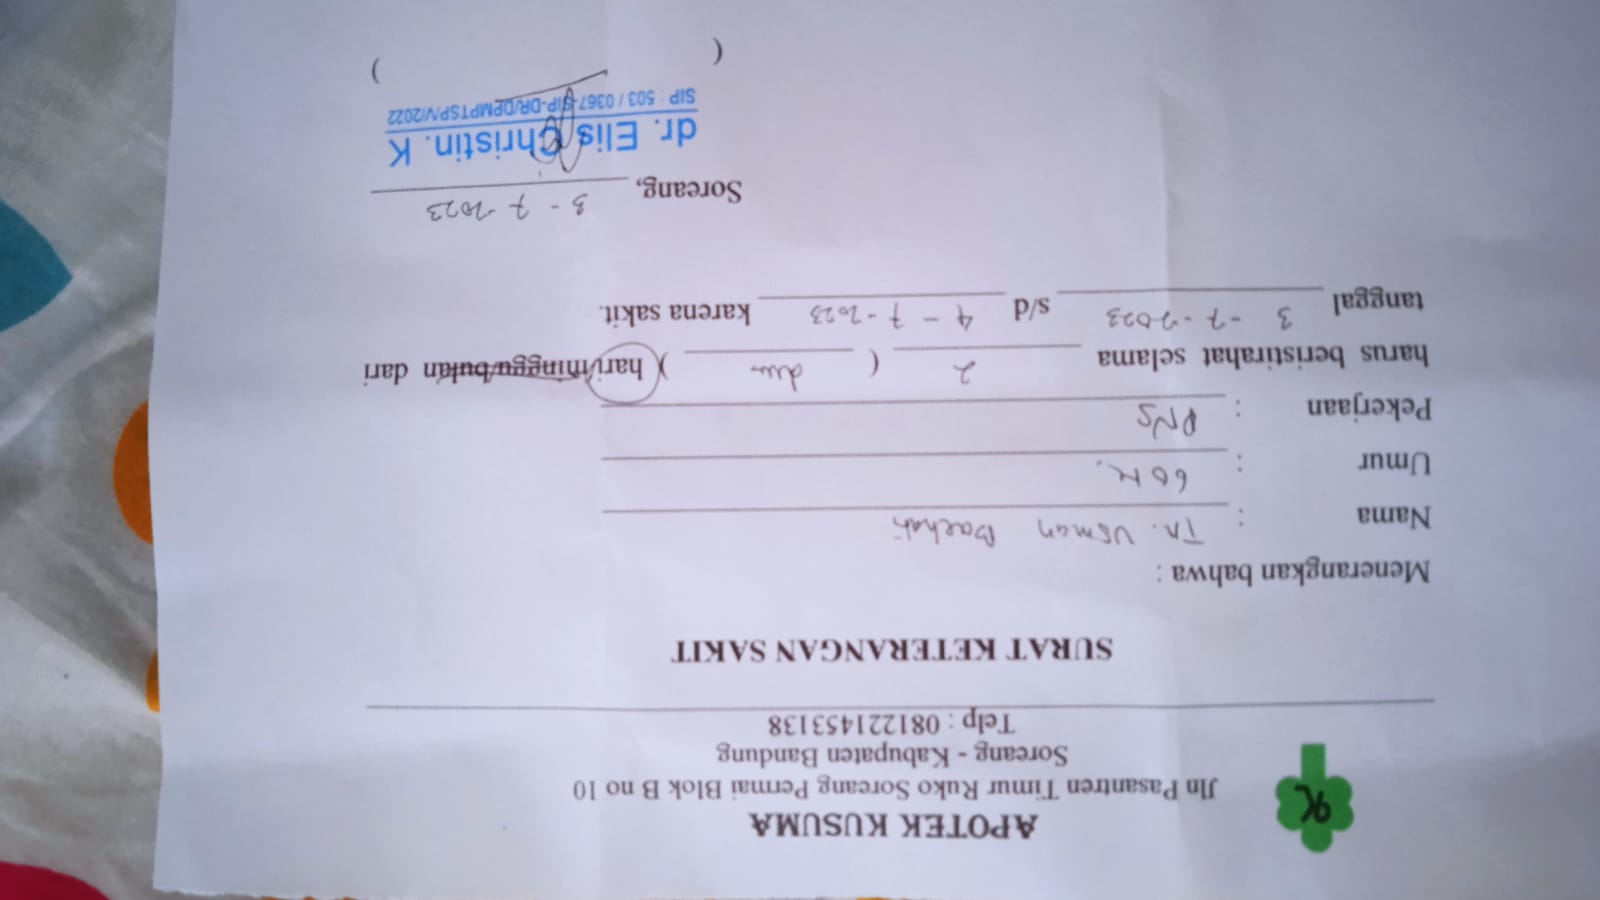 APOTEK KUSUMA
Jln Pasantren Timur Ruko Soreang Permai Blok B no 10
Soreang - Kabupaten Bandung
Telp : 081221453138
SURAT KETERANGAN SAKIT
Menerangkan bahwa :
Nama : Tn. Usman
Umur : 60
Pekerjaan : PNS
harus beristirahat selama 2 ( dua ) hari/minggu/bulan dari
tanggal 3 - 7 - 2023 s/d 4 - 7 - 2023 karena sakit.
Soreang, 3 - 7 - 2023
dr. Elis Christin. K
SIP : 503 / 0367-SIP-DR/DPMPTSP/V/2022
( )